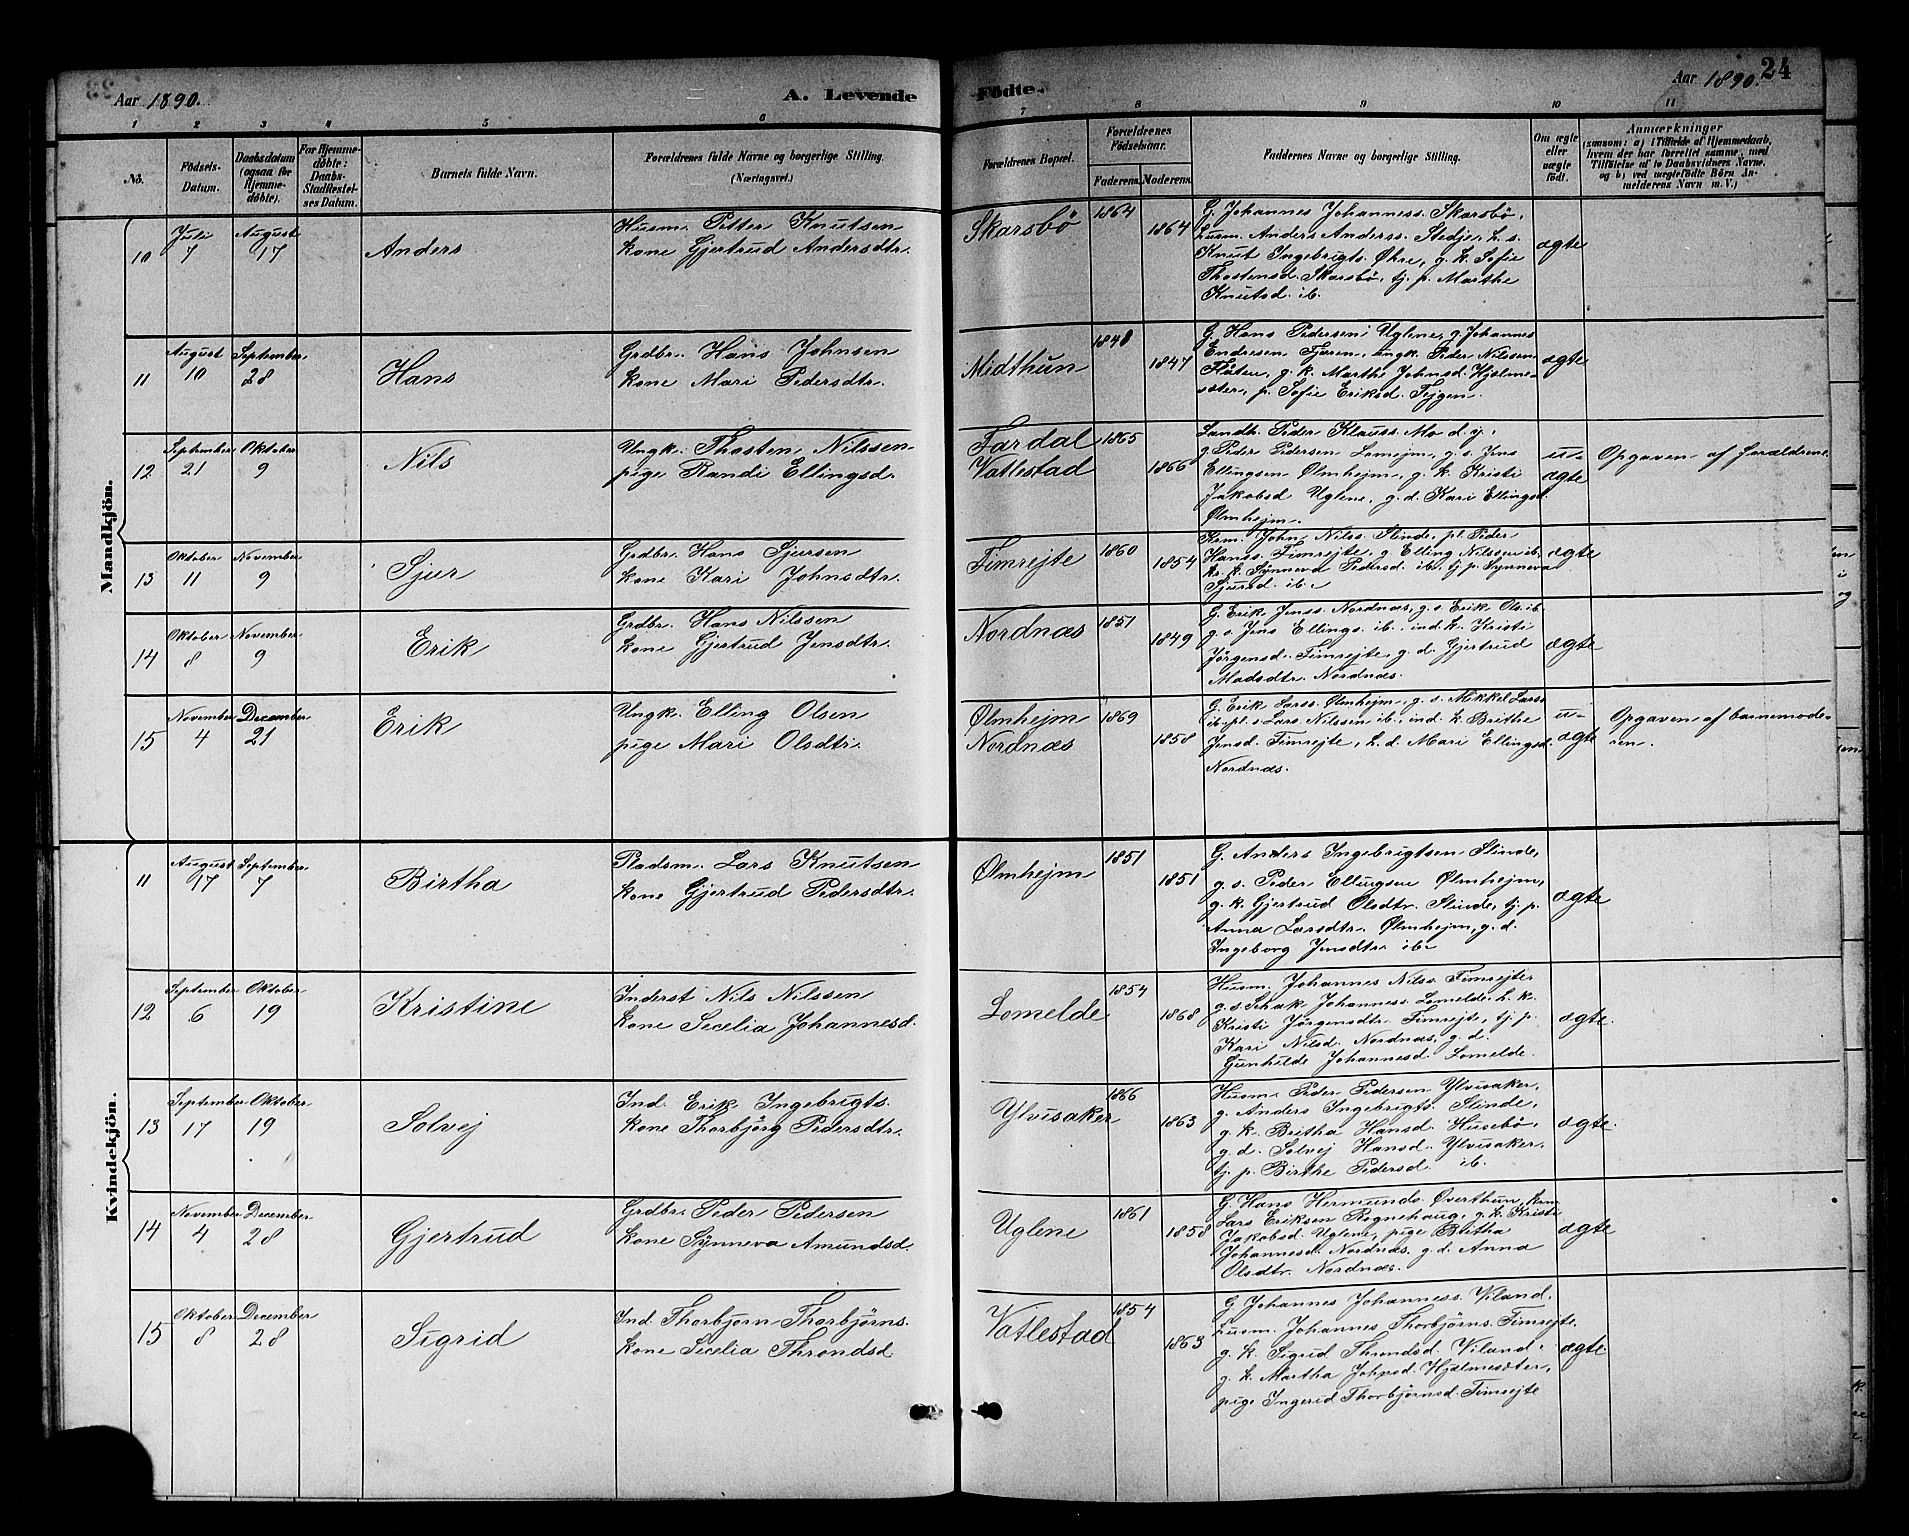 Aar 1890.
A. Levende
Födte.
Aar 1890.
24
1 2 3 4 5 6 7 8 9 10 11
No.
Födsels-
Datum.
Daabsdatum
(ogsaa for
Hjemme-
döbte).
For Hjemme-
döbte:
Daabs-
Stadfæstel-
ses Datum.
Barnets fulde Navn.
Forældrenes fulde Navne og borgerlige Stilling.
(Næringsvei.)
Forældrenes Bopæl.
Forældrenes
Födselsaar.
Faderens. Moderens.
Faddernes Navne og borgerlige Stilling.
Om ægte
eller
uægte
født.
Anmærkninger
(saasom: a) i Tilfælde af Hjemmedaab,
hvem der har forrettet samme, med
Tilföielse af to Daabsvidners Navne,
og b) ved uægtefödte Börn An-
melderens Navn m. V.)
Mandkjön.
10
Juli
7
August
17
Anders
Husm. Petter Knutsen
kone Gjertrud Andersdtr.
Skarsbö
1864
1864
G. Johannes Johanness. Skarsbö,
Husm. Anders Anderss. Stedje, h. s.
Knut Ingebrigts. Øhre, g. k. Sofie
Thostensd. Skarsbö, tj. p. Marthe
Knutsd. ib.
ægte
11
August
10
September
28
Hans
Grdbr. Hans Johnsen
kone Mari Pedersdtr.
Midthun
1848
1847
G. Hans Pedersen Uglene, g. Johannes
Endresen Fjæren, ungk. Peder Nilssen
Flaten, g. k. Marthe Johnsd. Hjælme-
sæter, p. Sofie Eriksd. Tejgen.
ægte
12
September
21
Oktober
9
Nils
Ungk. Thosten Nilssen
pige Randi Ellingsd.
Fardal
Vatlestad
1865
1866
Landh. Peder Klauss. Mo d. y.
g. Peder Pedersen Lomejm, g. s. Jens
Ellingsen Ølmhejm, g. k. Kristi
Jakobsd Uglene, g. d. Kari Ellingsd.
Ølmhejm.
u-
ægte
Opgaven af forældrene.
13
Oktober
11
November
9
Sjur
Grdbr. Hans Sjursen
kone Kari Johnsdtr.
Fimrejte
1860
1854
Krm. John Nilss. Slinde, pl. Peder
Hanss. Fimrejte, g. Elling Nilssen ib,
kr. k. Synneva Pedersd. ib. tj. p. Synneva
Sjursd. ib.
ægte
14
Oktober
8
November
9
Erik
Grdbr. Hans Nilssen
kone Gjertrud Jensdtr.
Nordnæs
1851
1849
G. Erik Jenss. Nordnæs, g. s. Erik Ols. ib.
g. s. Jens Ellings. ib., ind. k. Kristi
Jörgensd. Fimrejte, g. d. Gjertrud
Madsdtr. Nordnæs.
ægte
15
November
4
December
21
Erik
Ungk. Elling Olsen
pige Mari Olsdtr.
Ølmhejm
Nordnæs
1869
1858
G. Erik Larss. Ølmhejm, g. s. Mikkel Larss.
ib. pl. s. Lars Nilssen ib., ind. k. Brithe
Jensd. Fimrejte, h. d. Mari Ellingsd.
Nordnæs.
u-
ægte
Opgaven af barnemode-
ren.
Kvindekjön.
11
August
17
September
7
Birtha
Pladsm. Lars Knutsen
kone Gjertrud Pedersdtr.
Ølmhejm
1851
1851
G. Anders Ingebrigtsen Slinde,
g. s. Peder Ellingsen Ølmhejm,
g. k. Gjertrud Olsdtr. Slinde, tj. p.
Anna Larsdtr. Ølmhejm, g. d.
Ingeborg Jensdtr. ib.
ægte
12
September
6
Oktober
19
Kristine
Inderst Nils Nilssen
kone Secelia Johannesd.
Lomelde
1854
1868
Husm. Johannes Nilss. Fimrejte
g. s. Schak Johanness. Lomelde, h. k.
Kristi Jörgensdtr. Fimrejte, tj. p.
Kari Nilsd. Nordnæs, g. d.
Gunhilde Johannesd. Lomelde.
ægte.
13
September
17
Oktober
19
Solvej
Ind. Erik Ingebrigts.
kone Thorbjörg Pedersdtr.
Ylvisaker
1866
1863
Husm. Peder Pedersen Ylvisaker,
g. Anders Ingebrigts. Slinde,
g. k. Britha Hansd. Husebö,
g. d. Solvej Hansd. Ylvisaker,
tj. p. Birthe Pedersd. ib.
ægte.
14
November
4
December
28
Gjertrud
Grdbr. Peder Pedersen
kone Synneva Amundsd.
Uglene
1861
1858
G. Hans Hermunds. Øverthun, krm.
Lars Eriksen Rognehaug, g. k. Kristi
Jakobsd. Uglene, pige Britha
Johannesd. Nordnæs, g. d. Anna
Olsdtr. Nordnæs.
ægte
15
Oktober
8
December
28
Sigrid
Ind. Thorbjörn Thorbjörns.
kone Secelia Throndsd.
Vatlestad
1854
1863
G. Johannes Johanness. Viland,
Husm. Johannes Thorbjörns. Fimrejte,
g. k. Sigrid Throndsd. Viland,
g. k. Martha Johnsd. Hjælmesæter,
pige Ingerid Thorbjörnsd. Fimrejte
ægte